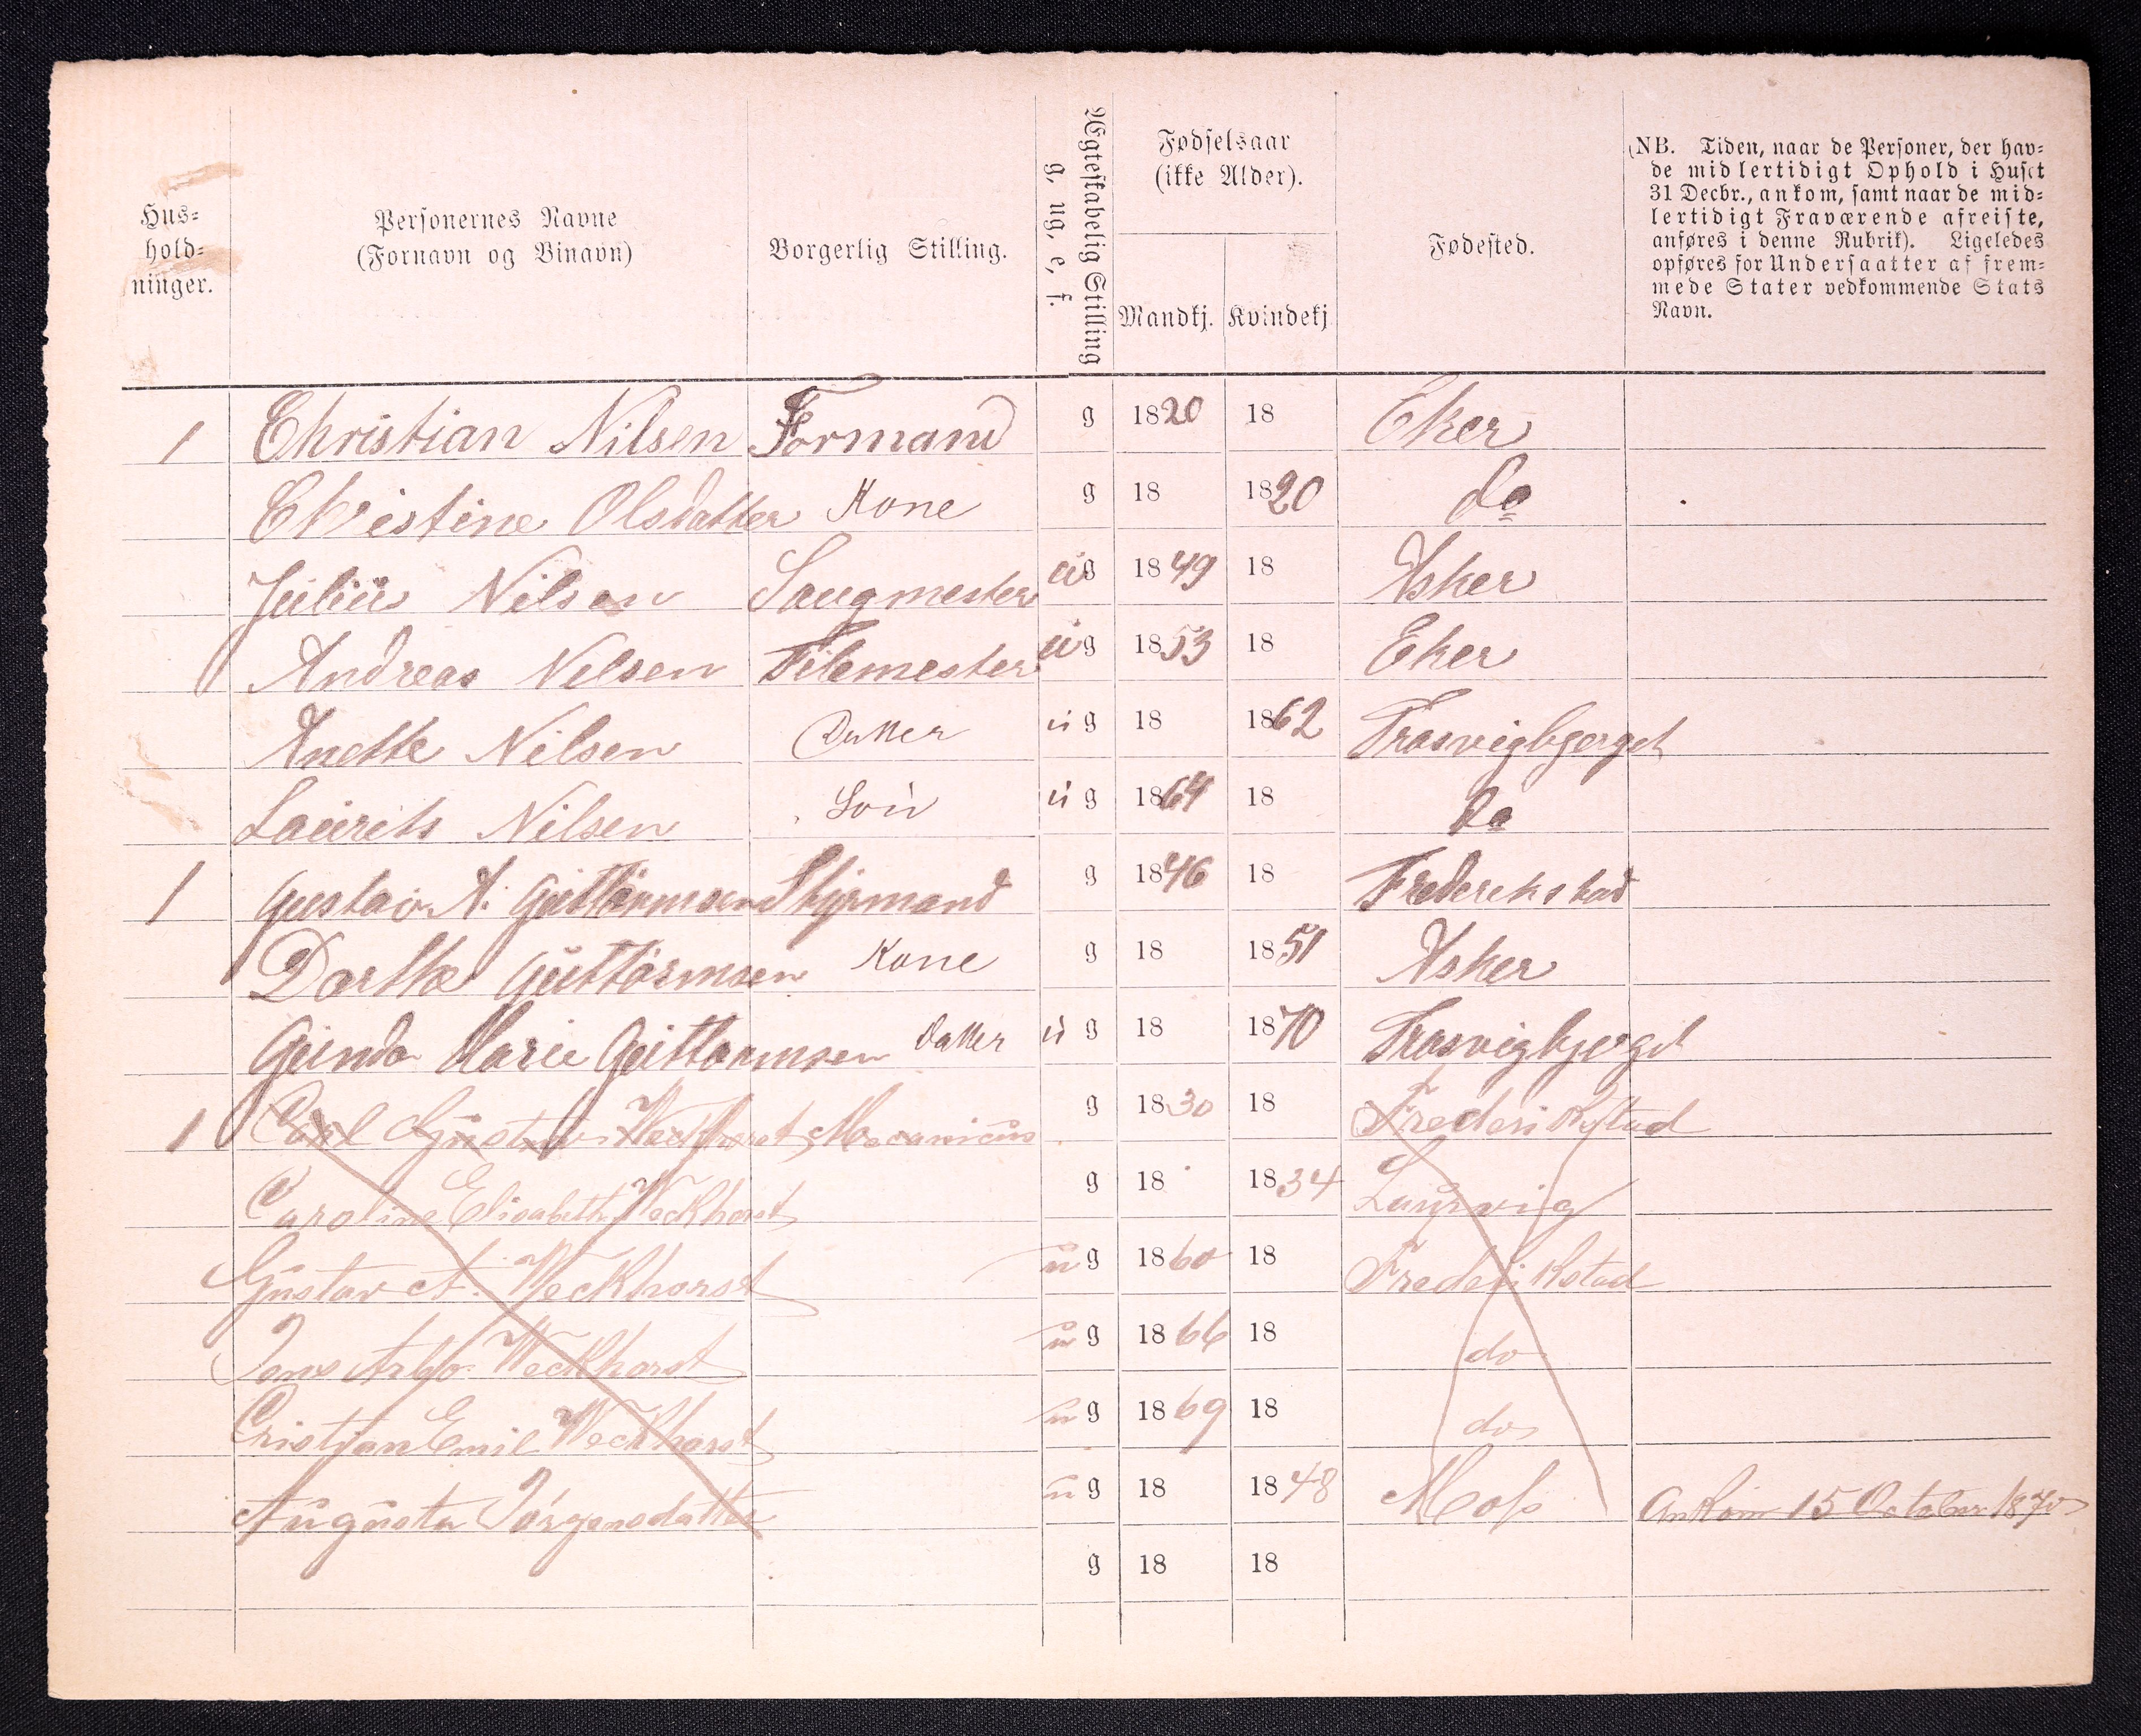 Hus-
hold-
ninger.
Personernes Navne
(Fornavn og Binavn)
Borgerlig Stilling.
Ægteskabelig Stilling
g, ug, e, f.
Fødselsaar
(ikke Alder).
Mandkj. Kvindekj
Fødested.
(NB. Tiden, naar de Personer, der hav-
de midlertidigt Ophold i Huset
31 Decbr., ankom, samt naar de mid-
lertidigt Fraværende afreiste,
anføres i denne Rubrik). Ligeledes
opføres for Undersaatter af frem-
mede Stater vedkommende Stats
Navn.
1 Christian Nilsen Formand g 1820 18 Eker
Christine Olsdatter Kone g 18 1820 do
Juliús Nilsen Saugmester ug 1849 18 Asker
Andreas Nilsen Filemester ug 1853 18 Eker
Anette Nilsen Datter ug 18 1862 Trosvigbjerget
Laurits Nilsen Søn ug 1864 18 do
1 Gustav A. Guttormsen Styrmand g 1846 18 Frederekstad
Dorthe Guttormsen Kone g 18 1851 Asker
Gunda Marie Guttormsen Datter ug 18 1870 Trosvigbjerget
1 Carl Gustav Weckhorst Mecanicus g 1830 18 Frederikstad
Caroline Elisabeth Weckhorst g 18 1834 Laurvig
Gustav A. Weckhorst ug 1860 18 Frederikstad
Jens Arbo Weckhorst ug 1866 18 do
Cristian Emil Weckhorst ug 1869 18 do
Augusta Jörgensdatter ug 18 1848 Moss Ankom 15 October 1870
g 18 18